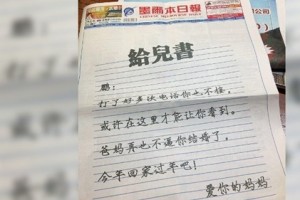 墨爾本日報
公司
給兒書
鹏:
打了好多次电话你也不接,
或许在这里才能让你看到。
爸妈再也不逼你结婚了。
今年回家过年吧!
爱你的妈妈